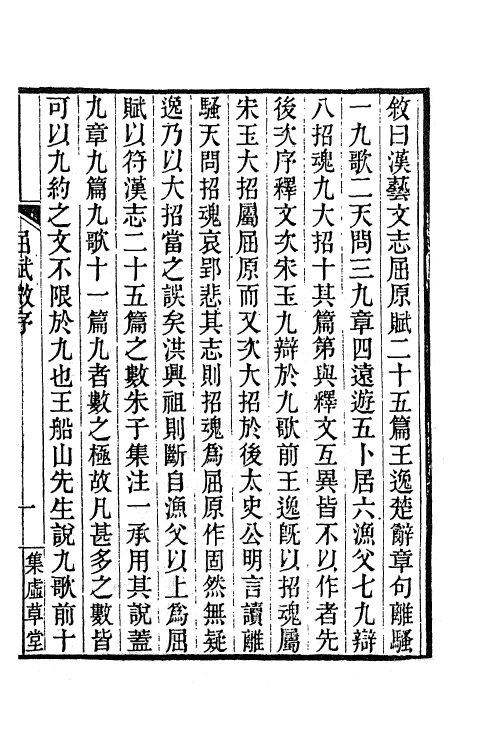 敘曰漢藝文志屈原賦二十五篇王逸楚辭章句離騷
一九歌二天問三九章四遠遊五卜居六漁父七九辯
八招魂九大招十其篇第與釋文互異皆不以作者先
後次序釋文次宋玉九辯於九歌前王逸旣以招魂屬
宋玉大招屬屈原而又次大招於後太史公明言讀離
騷天問招魂哀郢悲其志則招魂爲屈原作固然無疑
逸乃以大招當之誤矣洪興祖則斷自漁父以上爲屈
賦以符漢志二十五篇之數朱子集注一承用其說蓋
九章九篇九歌十一篇九者數之極故凡甚多之數皆
可以九約之文不限於九也王船山先生說九歌前十
屈賦敘序
一
集虛草堂